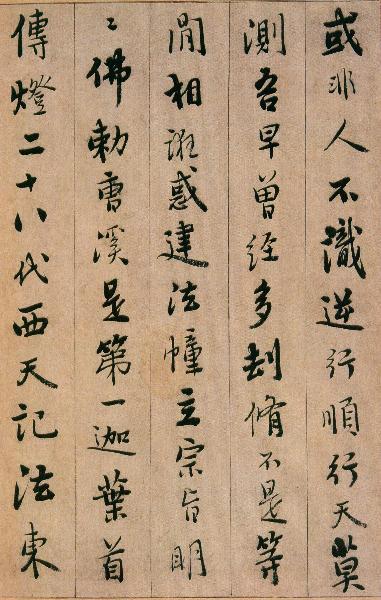 或非人不識逆行順行天莫
測吾早曾經多刦脩不是等
閒相誑惑建法幢立宗旨明
〻佛勅曹溪是第一迦葉首
傳燈二十八代西天記法東